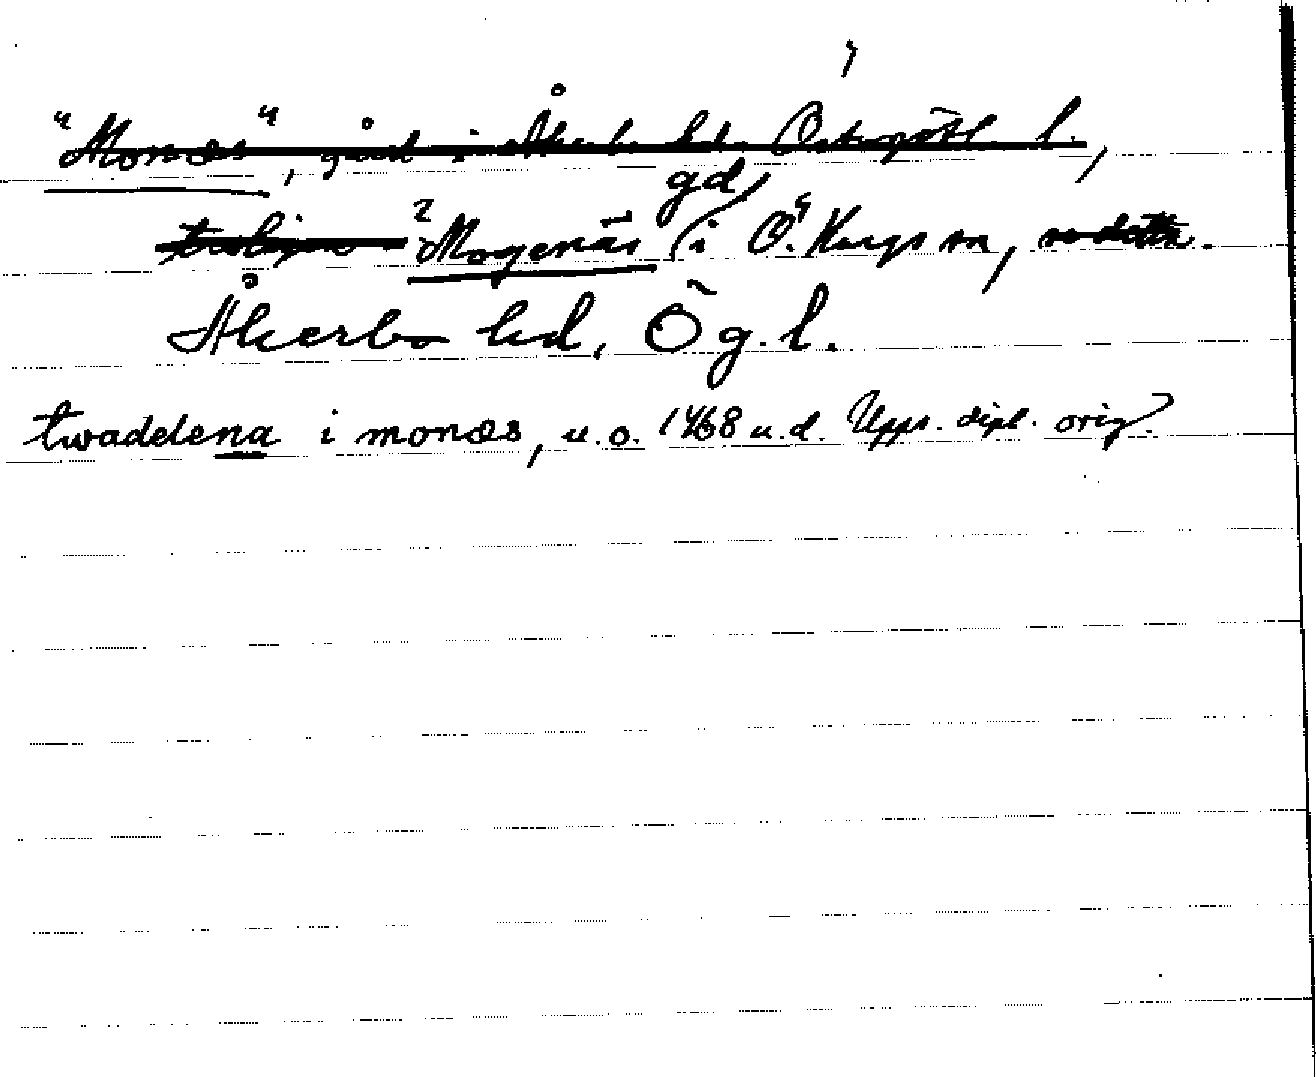 "Monæs", gård i Åkerbo hd. Östergötl. l.,
troligen Mogenäs gd i Ö. Hargs sn,
Åkerbo hd, Ög. l.
twadelena i monæs, u. o. 1468 u. d. Upps. dipl. orig.